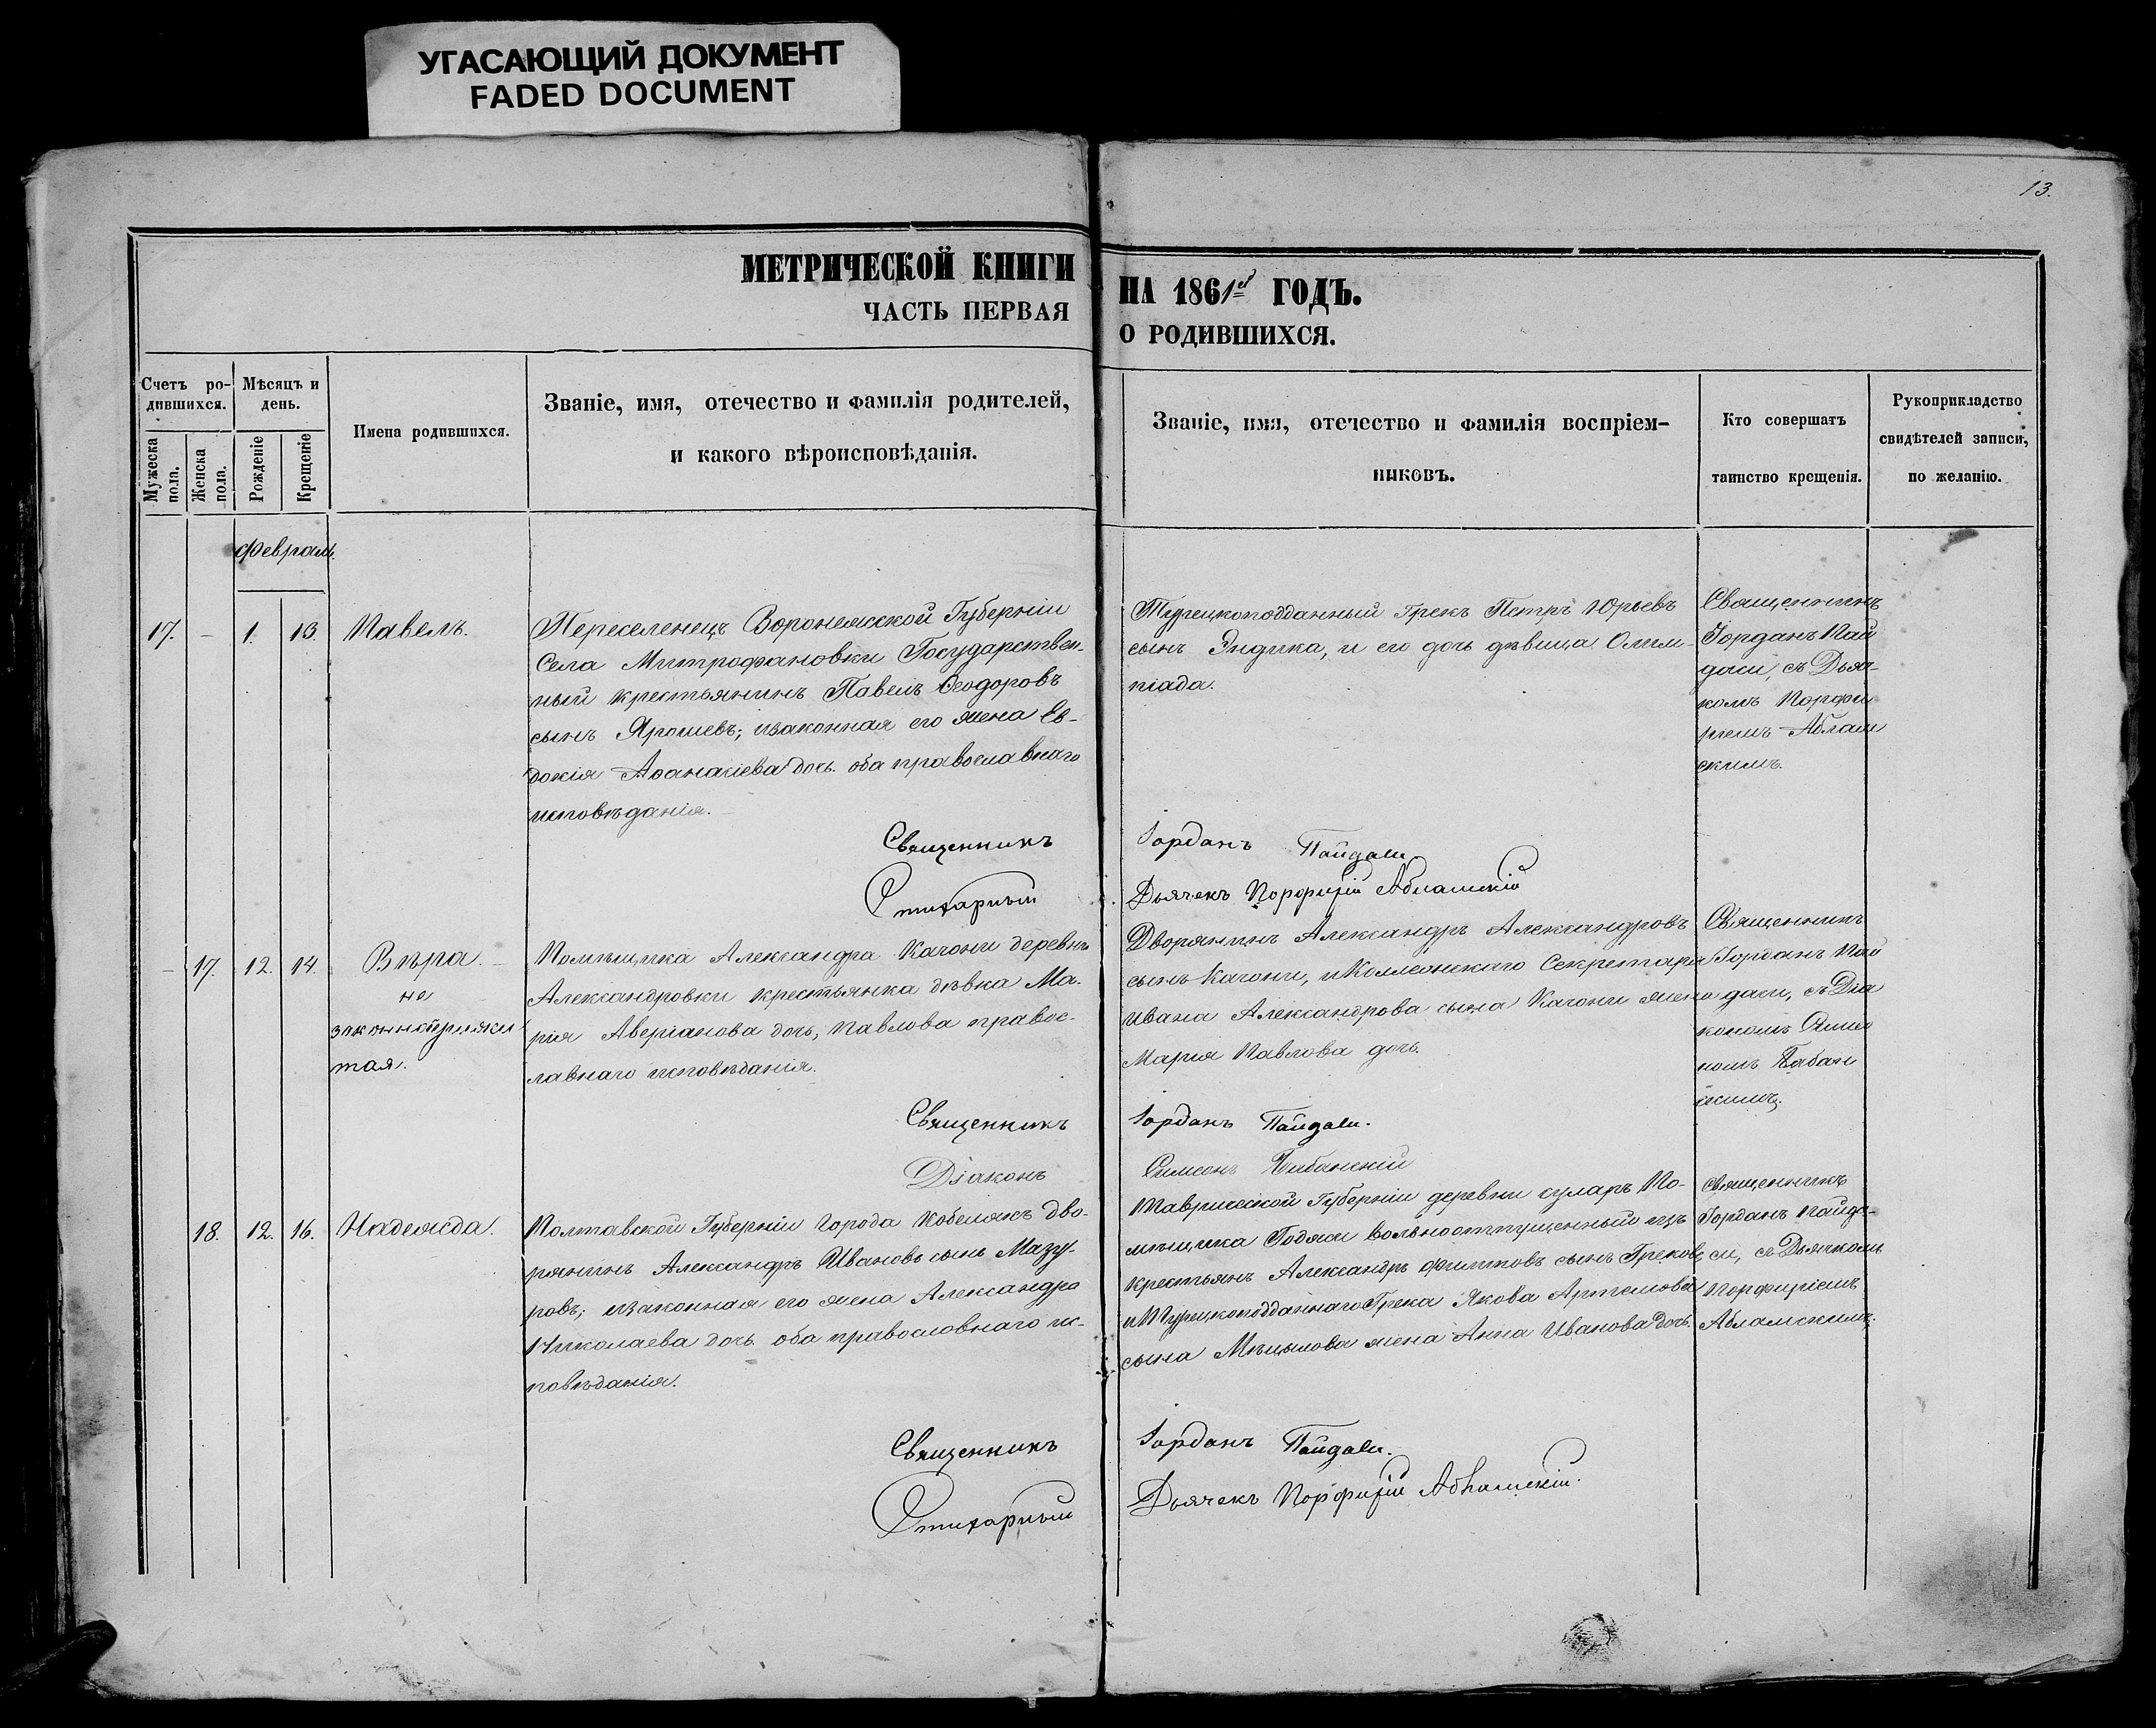 УГАСАЮЩИЙ ДОКУМЕНТ
FADED DOCUMENT
13.
МЕТРИЧЕСКОЙ КНИГИ
ЧАСТЬ ПЕРВАЯ
НА 1861й ГОДЪ.
О РОДИВШИХСЯ.
Счетъ ро-
дившихся.
Мужеска пола.
Женска пола.
Мѣсяцъ и
день.
Рожденіе
Крещеніе
Имена родившихся.
Званіе, имя, отечество и фамилія родителей,
и какого вѣроисповѣданія.
Званіе, имя, отечество и фамилія воспріем-
никовъ.
Кто совершатъ
таинство крещенія.
Рукоприкладство
свидѣтелей записи,
по желанію.
17. – 1. 13. Павелъ.
Переселенецъ Воронежской Губерніи
Села Митрофановки Государствен-
ный крестьянинъ Павелъ Ѳеодоровъ
сынъ Ярошевъ; изаконная его жена Ев-
докія Аѳанасіева дочь. оба православнаго
исповѣданія.
Турецкоподданный Грекъ Петръ Юрьевъ
сынъ Эндика, и его дочь дѣвица Олим-
піада.
Священникъ
Іорданъ Пай
даси, съ Дьяч-
комъ Порфи
ріемъ
скимъ.
Священникъ
Стихарный
Іорданъ Пайдаси
Дьячекъ Порфирій
– 17. 12. 14. Вѣра. –
не
законноприжи
тая.
Помѣщика Александра Качони деревни
Александровки крестьянка дѣвка Ма-
рія Аверіанова дочь, Павлова правос-
лавнаго исповѣданія.
Дворянинъ Александръ Александровъ
сынъ Качони, и Коллежскаго Секретаря
Ивана Александрова сына Качони жена
Марія Павлова дочь.
Священникъ
Іорданъ Пай
даси, съ Діа
кономъ Симео
номъ
скимъ.
Священникъ
Діаконъ
Іорданъ Пайдаси.
Симеонъ
18. 12. 16. Надежда.
Полтавской Губерніи Города Кобелякъ дво-
рянинъ Александръ Ивановъ сынъ Мазу-
ровъ; изаконная его жена Александра
Николаева дочь оба православнаго ис-
повѣданія.
Таврической Губерніи деревни По-
мѣщика вольноотпущенный изъ
крестьянъ Александръ Филиповъ сынъ Грековъ,
и Турецкоподданнаго Грека Якова Артемова
сына жена Анна Иванова дочь.
Священникъ
Іорданъ Пайда-
си, съ Дьячкомъ
Порфиріемъ
Священникъ
Стихарный
Іорданъ Пайдаси.
Дьячекъ Порфирій